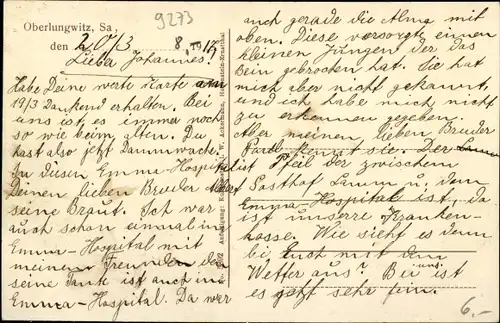 9273
Oberlungwitz, Sa.
den 20/3 8. 1917
Lieber Johannes!
Habe Deine werte Karte am
19/3 Dankend erhalten. Bei
uns ist es immer noch
so wie beim alten. Du
hast also jetzt Dammwache
In diesen Emma-Hospital ist
Deinen lieben Bruder Albert
seine Braut. Ich war
auch schon einmal im
Emma-Hospital mit
meinem Freunden den
seine Tante ist auch im
Emma-Hospital. Da war
auch gerade die Alma mit
oben. Diese versorgt einen
kleinen Jungen der das
Bein gebrochen hat. Sie hat
mich aber nicht gekannt
und ich habe mich nicht
zu erkennen gegeben.
Aber meinen lieben Bruder
Paul kennt sie. Der
Pfeil der zwischen
Gasthof Lamm u. dem
Emma-Hospital ist, da
ist unsere Kranken-
kasse. Wie sieht es denn
bei Euch mit dem
Wetter aus? Bei uns ist
es jetzt sehr fein.
6.-